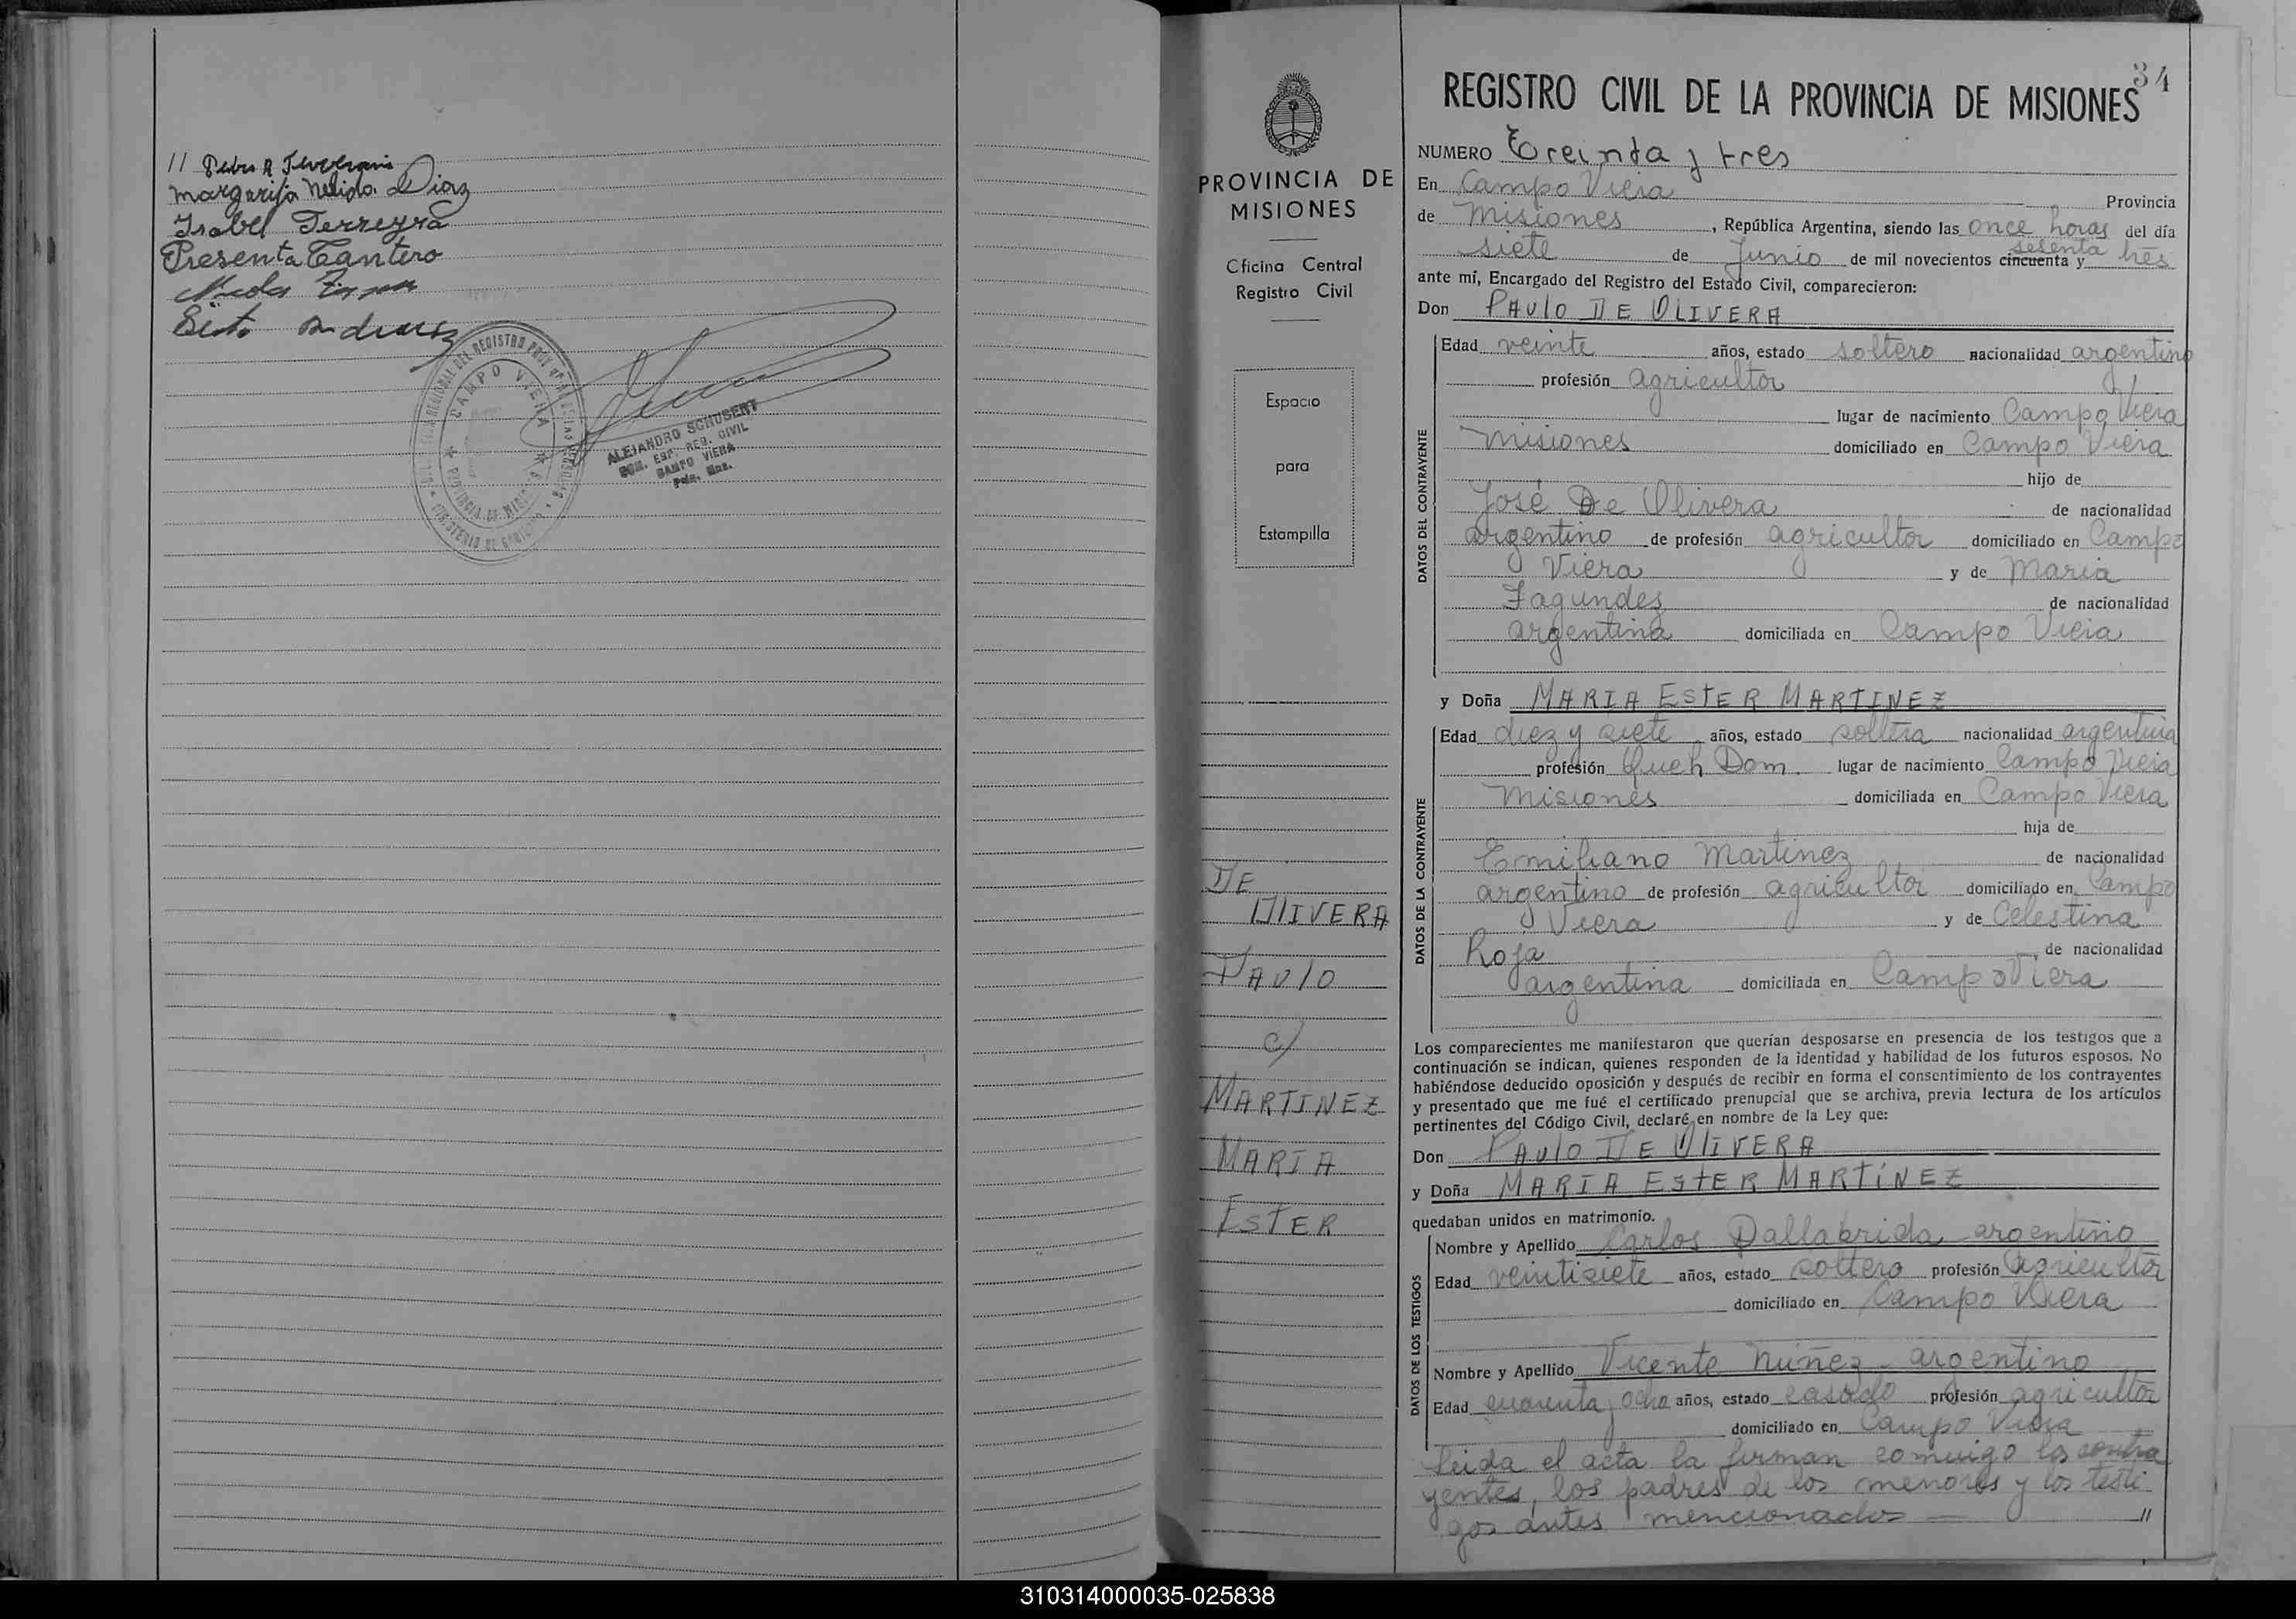 //
Margarija Nelida Diaz
Isabel Ferreyra
Presenta Cantero
Sixto
REGISTRO
CAMPO VIERA
PROVINCIA DE MISIONES
MINISTERIO DE GOBIERNO
ALEJANDRO SCHUBERT
REG. CIVIL
CAMPO VIERA
34
PROVINCIA DE
MISIONES
Oficina Central
Registro Civil
Espacio
para
Estampilla
DE
OLIVERA
PAULO
c/
MARTINEZ
MARIA
ESTER
REGISTRO CIVIL DE LA PROVINCIA DE MISIONES
NUMERO Treinta y tres
En Campo Viera Provincia
de Misiones, República Argentina, siendo las once horas del día
sesenta
siete de Junio de mil novecientos cincuenta y tres
ante mí, Encargado del Registro del Estado Civil, comparecieron:
Don PAULO DE OLIVERA
DATOS DEL CONTRAYENTE
Edad veinte años, estado soltero nacionalidad argentino
profesión agricultor
lugar de nacimiento Campo Viera
Misiones domiciliado en Campo Viera
hijo de
José De Olivera de nacionalidad
argentino de profesión agricultor domiciliado en Campo
Viera y de Maria
Fagundes de nacionalidad
argentina domiciliada en Campo Viera
y Doña MARIA ESTER MARTINEZ
DATOS DE LA CONTRAYENTE
Edad diez y siete años, estado soltera nacionalidad argentina
profesión Queh Dom. lugar de nacimiento Campo Viera
Misiones domiciliada en Campo Viera
hija de
Emiliano Martinez de nacionalidad
argentino de profesión agricultor domiciliado en Campo
Viera y de Celestina
Roja de nacionalidad
argentina domiciliada en Campo Viera
Los comparecientes me manifestaron que querían desposarse en presencia de los testigos que a
continuación se indican, quienes responden de la identidad y habilidad de los futuros esposos. No
habiéndose deducido oposición y después de recibir en forma el consentimiento de los contrayentes
y presentado que me fué el certificado prenupcial que se archiva, previa lectura de los artículos
pertinentes del Código Civil, declaré en nombre de la Ley que:
Don PAULO DE OLIVERA
y Doña MARIA ESTER MARTINEZ
quedaban unidos en matrimonio.
DATOS DE LOS TESTIGOS
Nombre y Apellido Carlos Dallabrida argentino
Edad veintisiete años, estado soltero profesión agricultor
domiciliado en Campo Viera
Nombre y Apellido Vicente Nuñez - argentino
Edad cuarenta y ocho años, estado casado profesión agricultor
domiciliado en Campo Viera
Leida el acta la firman conmigo los contra
yentes, los padres de los menores y los testi-
gos antes mencionados — //
310314000035-025838